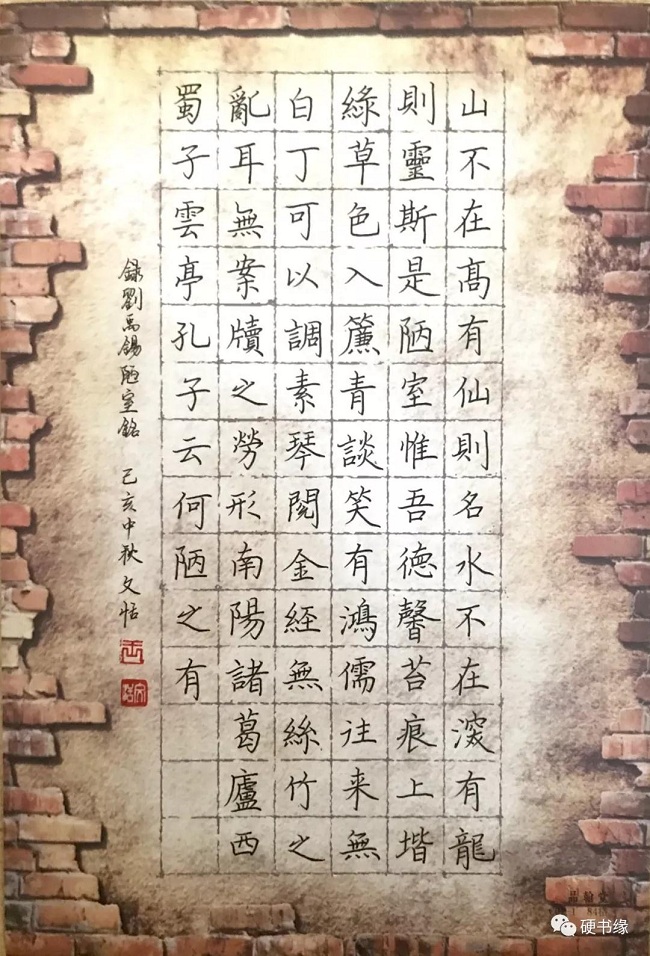 山不在高有仙則名水不在深有龍
則靈斯是陋室惟吾德馨苔痕上堦
綠草色入簾青談笑有鴻儒往来無
白丁可以調素琴閱金經無絲竹之
亂耳無案牘之勞形南陽諸葛廬西
蜀子雲亭孔子云何陋之有
録劉禹錫陋室銘 己亥中秋文恬
硬书缘